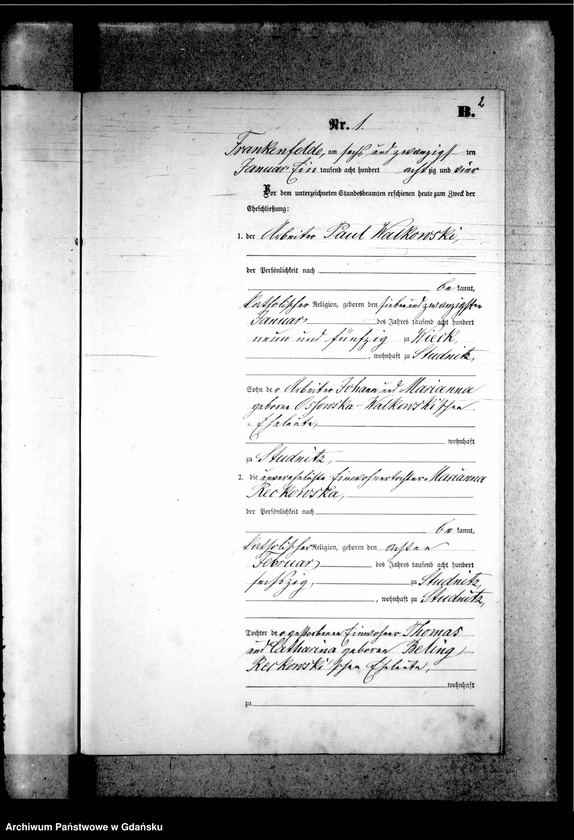 2
B.
Nr. 1.
Frankenfelde, am sechs und zwanzigsten
Januar Ein tausend acht hundert achtzig und vier
Vor dem unterzeichneten Standesbeamten erschienen heute zum Zweck der
Eheschließung:
1. der Arbeiter Paul Walkowski,
der Persönlichkeit nach
be kannt,
katholischer Religion, geboren den siebenundzwanzigsten
Januar des Jahres tausend acht hundert
neun und fünfzig zu Wieck,
, wohnhaft zu Studnitz,
Sohn der Arbeiter Johann und Marianna
geborne Ossowska - Walkowski'schen
Eheleute,
wohnhaft
zu Studnitz,
2. die unverehelichte Einwohnertochter Marianna
Reckowska,
der Persönlichkeit nach
be kannt,
katholischer Religion, geboren den achten
Februar des Jahres tausend acht hundert
sechszig, zu Studnitz,
, wohnhaft zu Studnitz,
Tochter der gestorbenen Einwohner Thomas
und Catharina geborene Beling
Reckowski'schen Eheleute,
wohnhaft
zu
Archiwum Państwowe w Gdańsku